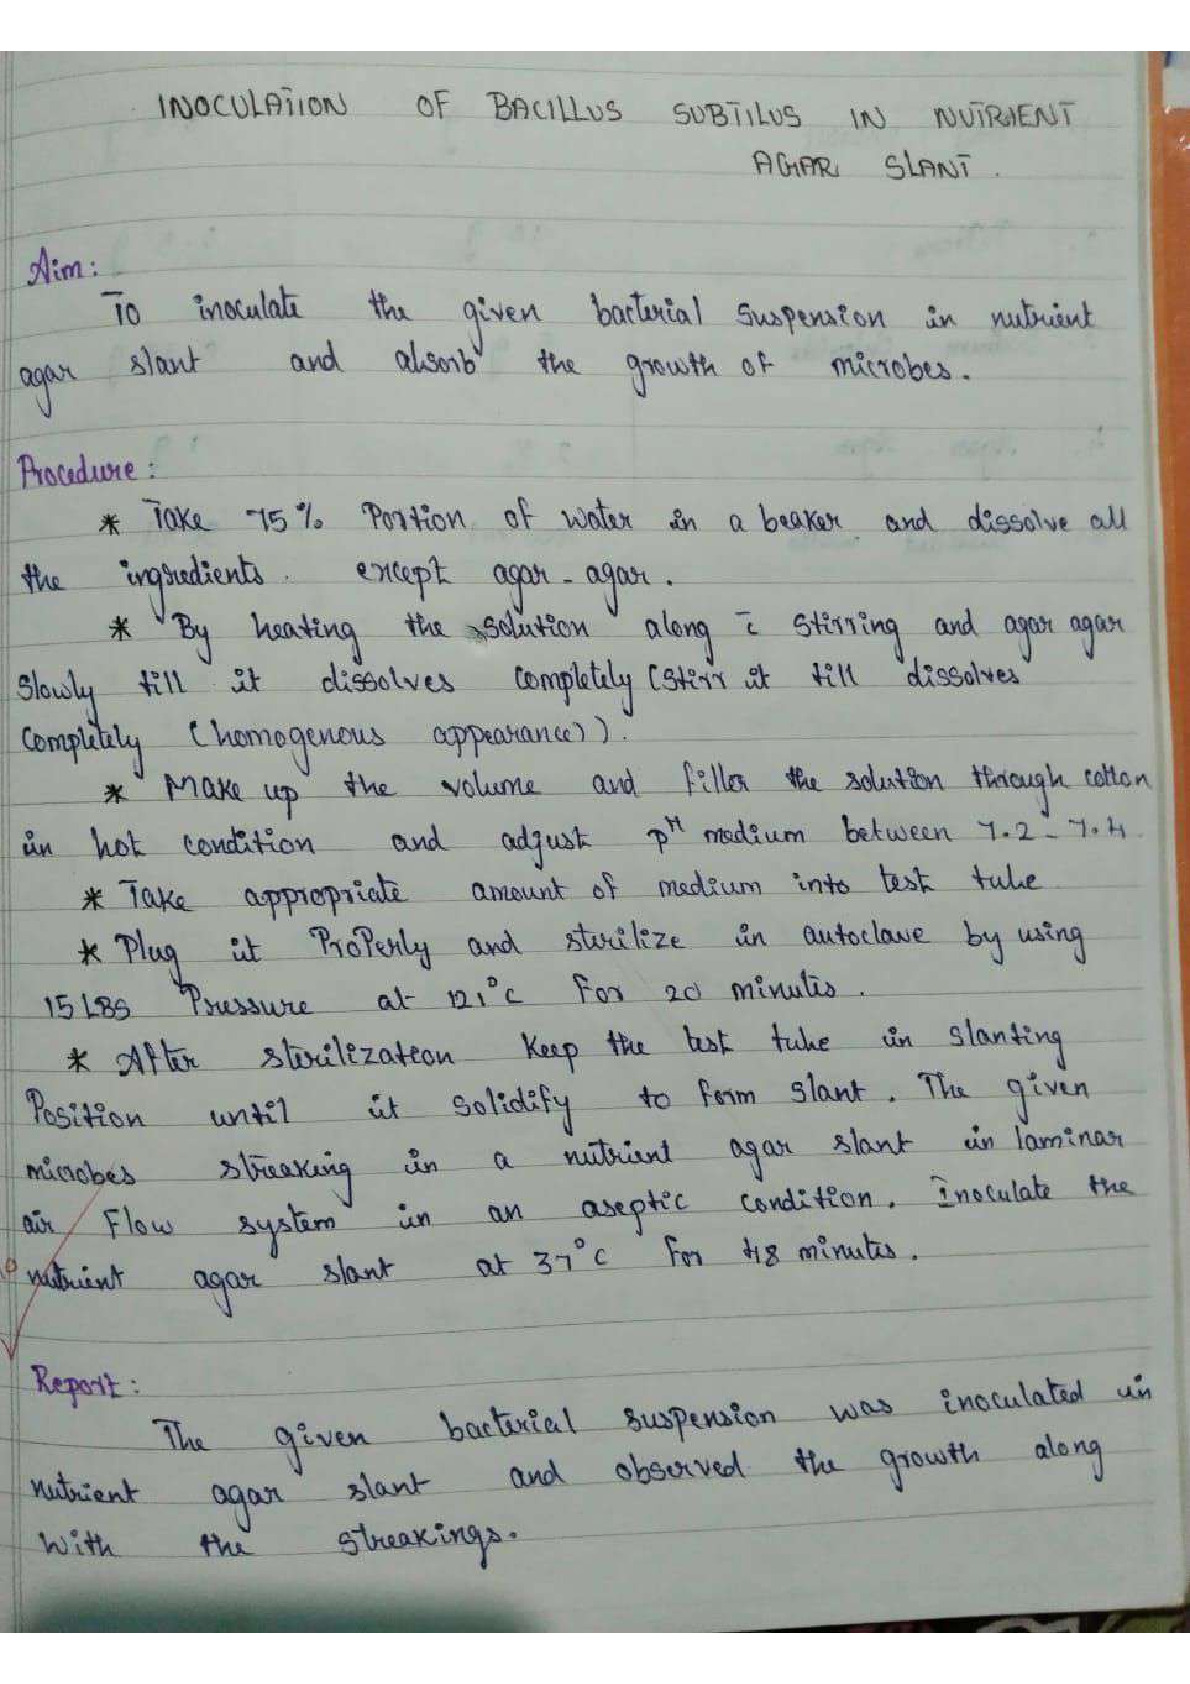 INOCULATION OF BACILLUS SUBTILUS IN NUTRIENT
AGAR SLANT.
Aim:
To inoculate the given bacterial suspension in nutrient
agar slant and absorb the growth of microbes.
Procedure:
* Take 75% Portion of water in a beaker and dissolve all
the ingredients. except agar-agar.
* By heating the solution along c̄ stirring and agar agar
slowly till it dissolves completely (stirr it till dissolves
completely (homogenous appearance)).
* Make up the volume and filler the solution through cotton
in hot condition and adjust pH medium between 7.2-7.4
* Take appropriate amount of medium into test tube
* Plug it Properly and sterilize in autoclave by using
15 LBS Pressure at 121°C For 20 minutes.
* After sterilization Keep the test tube in slanting
Position until it solidify to form slant. The given
microbes streaking in a nutrient agar slant in laminar
air Flow system in an aseptic condition. Inoculate the
nutrient agar slant at 37°C For 48 minutes.
Report:
The given bacterial suspension was inoculated in
nutrient agar slant and observed the growth along
with the streakings.